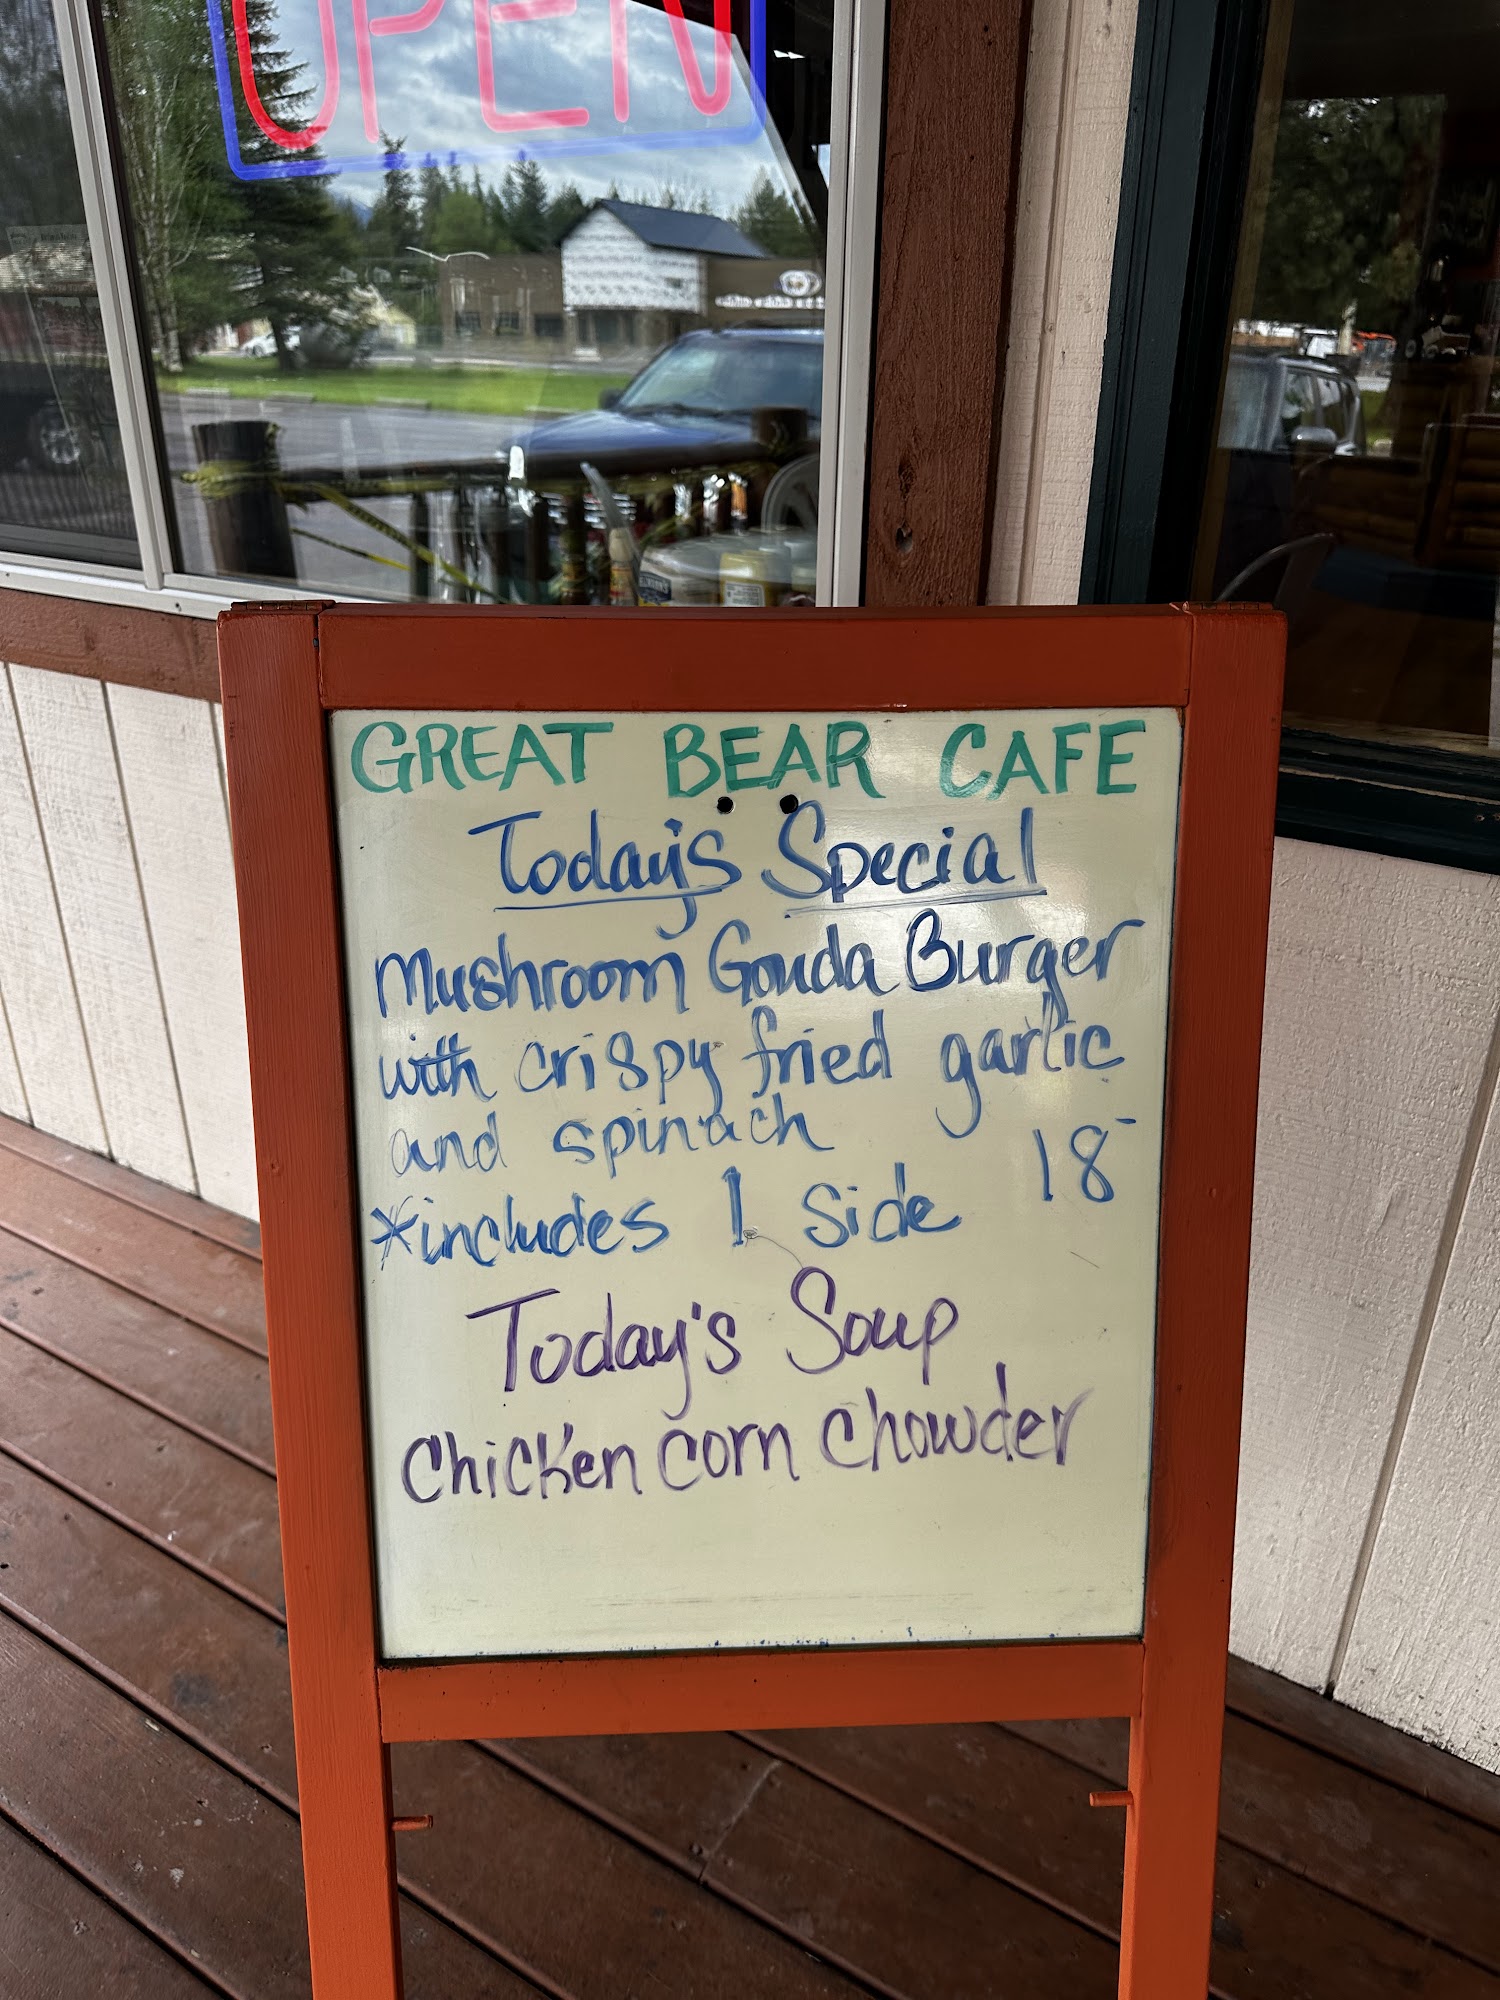 OPEN
GREAT BEAR CAFE
Today's Special
Mushroom Gouda Burger
with crispy fried garlic
and spinach 18-
*includes 1 side
Today's Soup
Chicken corn chowder